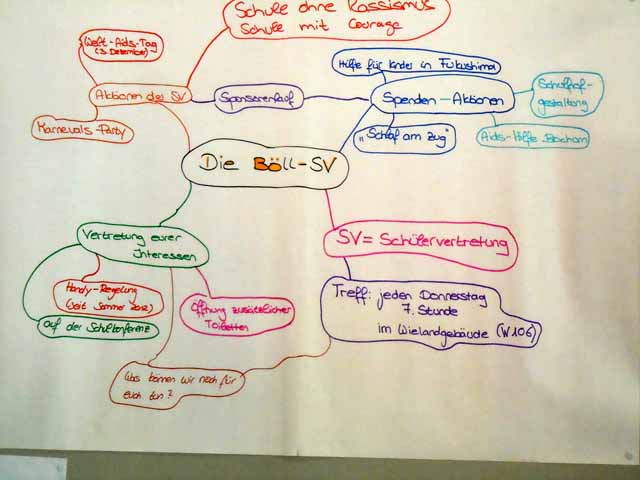 Schule ohne Rassismus
Schule mit Courage
Welt-Aids-Tag
(3. Dezember)
Hilfe für Kinder in Fukushima
Aktionen der SV
Sponsorenlauf
Spenden-Aktionen
Schulhof-
gestaltung
Karnevals-Party
"Schlaf am Zug"
Aids-Hilfe Bochum
Die Böll-SV
Vertretung eurer
Interessen
SV = Schülervertretung
Handy-Regelung
(seit Sommer 2012)
Öffnung zusätzlicher
Toiletten
auf der Schulkonferenz
Treff: jeden Donnerstag
7. Stunde
im Wielandgebäude (W106)
Was können wir noch für
euch tun?